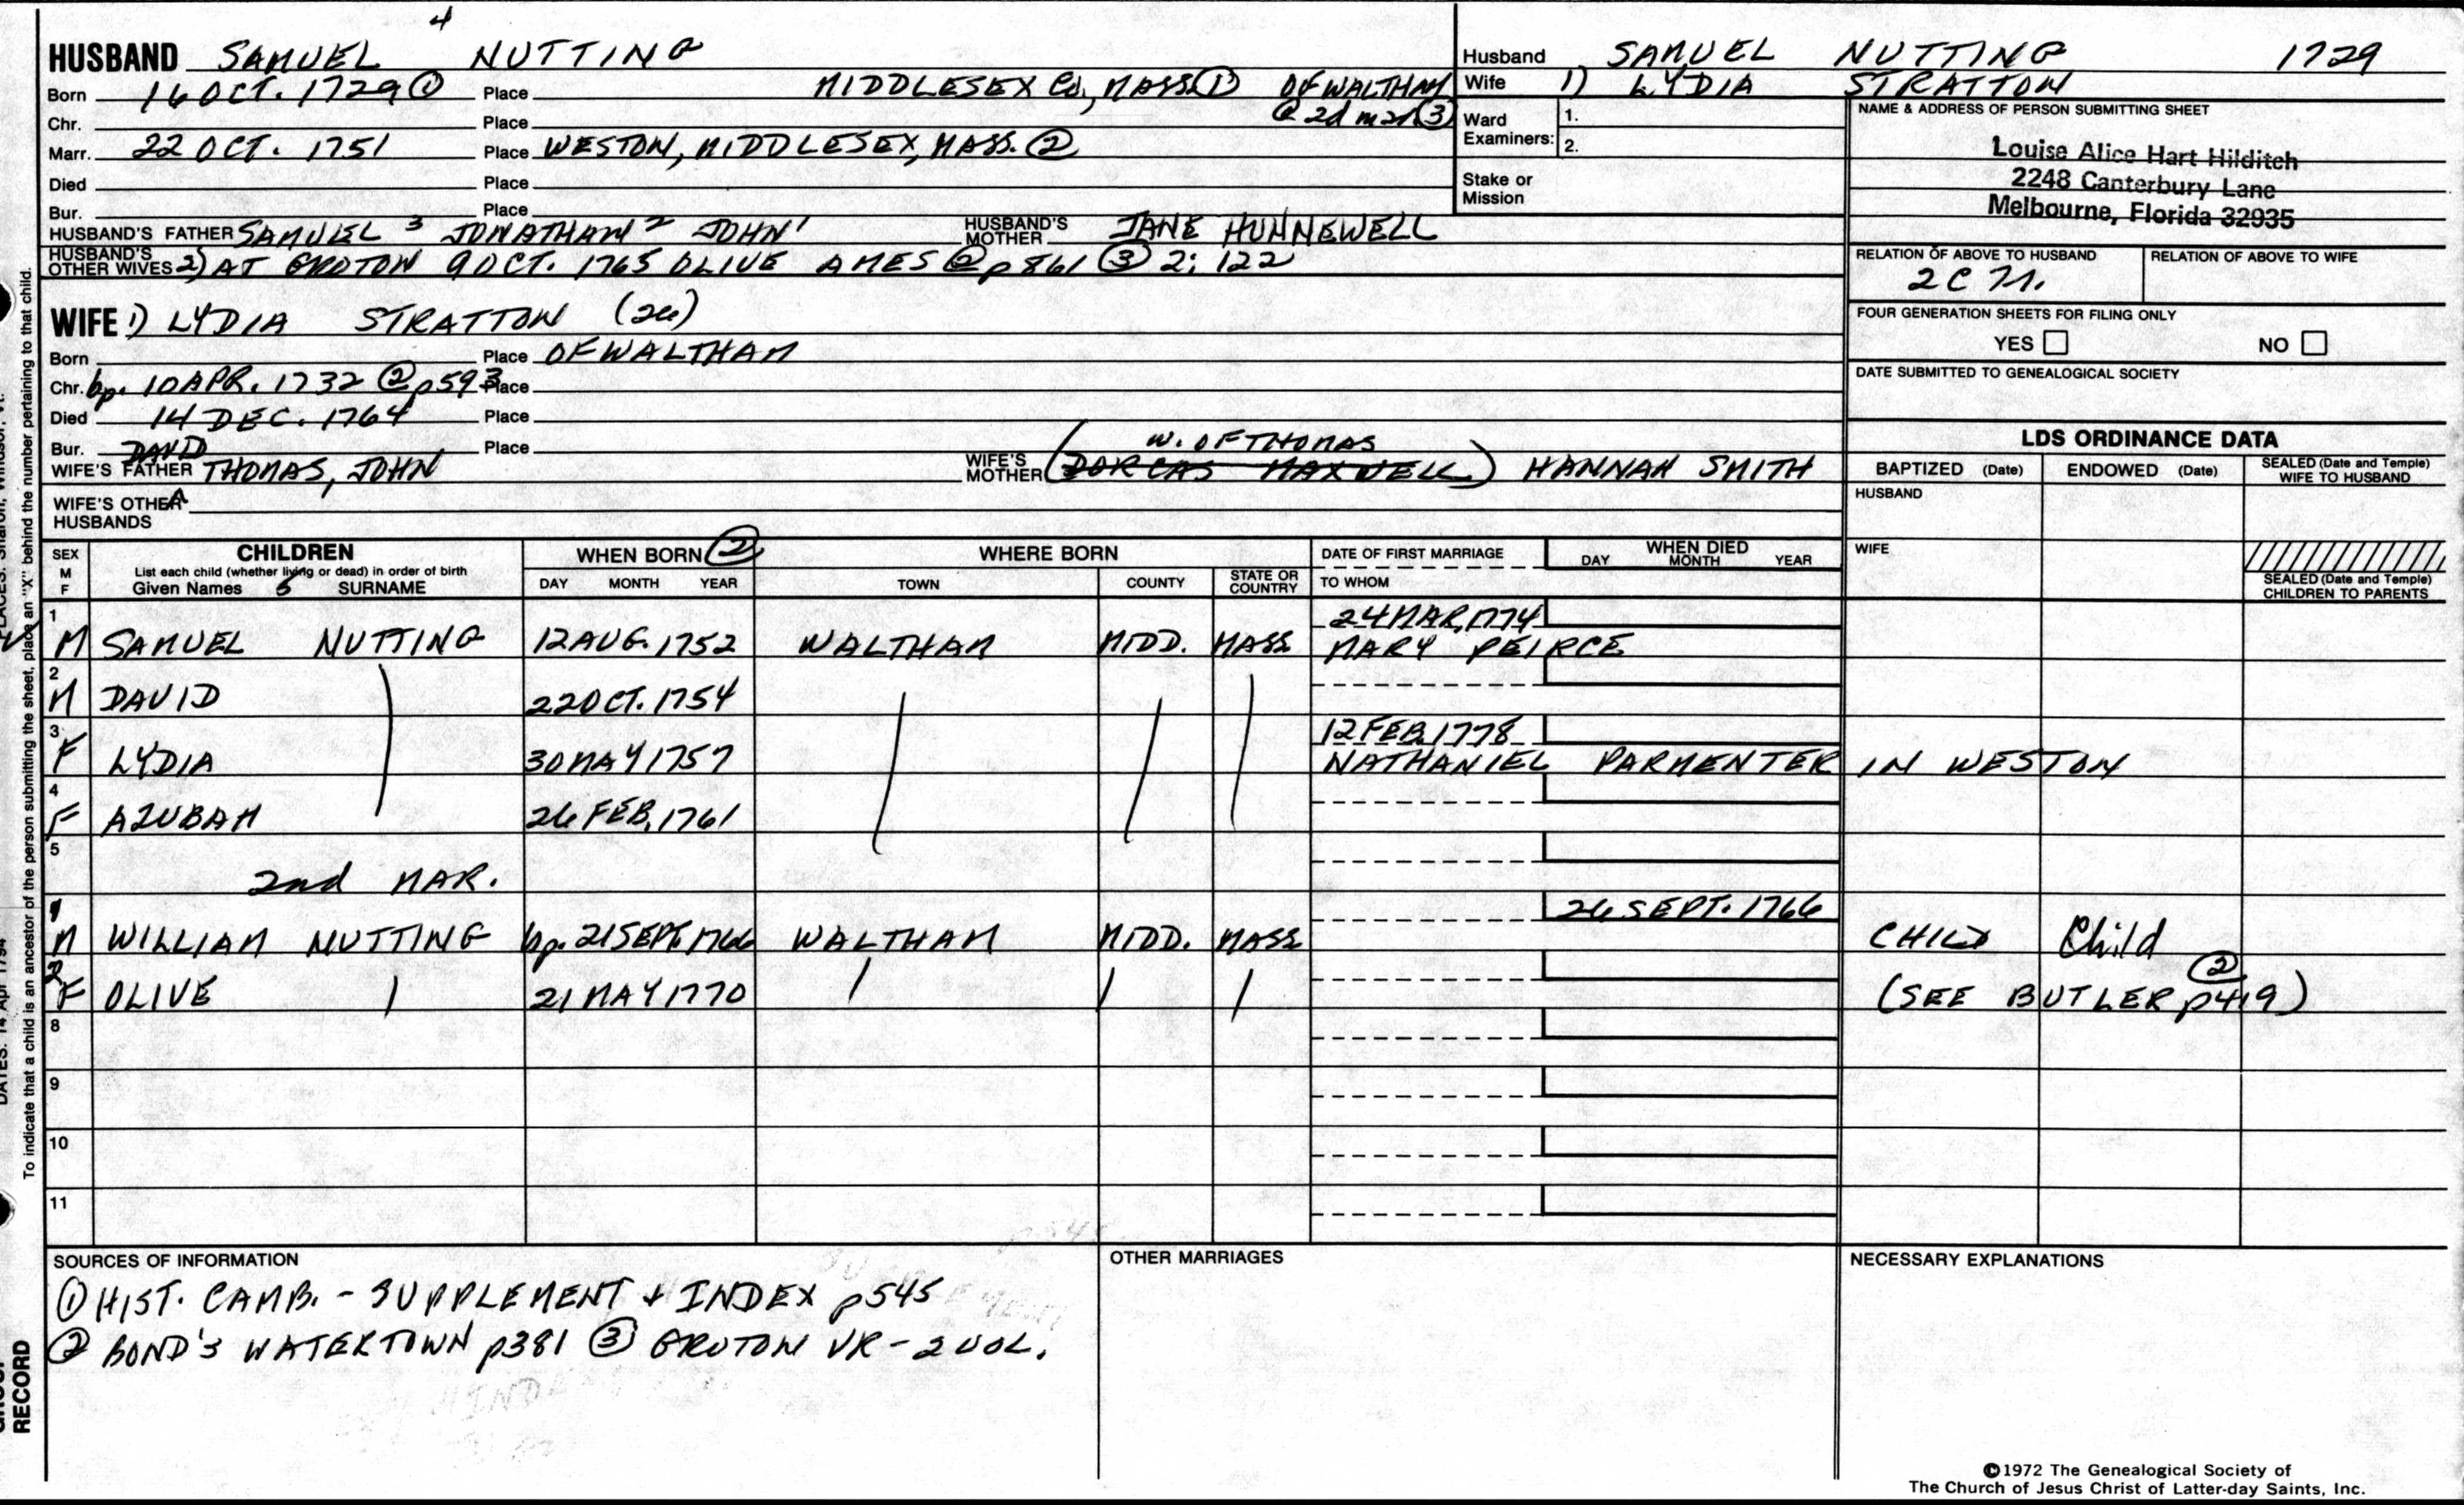 4
HUSBAND SAMUEL NUTTING
Born 16 OCT. 1729 ① Place MIDDLESEX Co., MASS ① OF WALTHAM
@ 2d mar ③
Chr. Place
Marr. 22 OCT. 1751 Place WESTON, MIDDLESEX, MASS. ②
Died Place
Bur. Place
HUSBAND'S FATHER SAMUEL 3 JONATHAN 2 JOHN 1 HUSBAND'S MOTHER JANE HUNNEWELL
HUSBAND'S OTHER WIVES 2) AT GROTON 9 OCT. 1765 OLIVE AMES @ p861 ③ 2: 122
Husband SAMUEL NUTTING 1729
Wife 1) LYDIA STRATTON
Ward Examiners: 1.
2.
Stake or Mission
NAME & ADDRESS OF PERSON SUBMITTING SHEET
Louise Alice Hart Hilditch
2248 Canterbury Lane
Melbourne, Florida 32935
RELATION OF ABOVE TO HUSBAND RELATION OF ABOVE TO WIFE
2C 7r.
FOUR GENERATION SHEETS FOR FILING ONLY
YES NO
DATE SUBMITTED TO GENEALOGICAL SOCIETY
WIFE 1) LYDIA STRATTON (26)
Born Place OF WALTHAM
Chr. bp. 10 APR. 1732 ② p593 Place
Died 14 DEC. 1764 Place
Bur. Place
DAVID
WIFE'S FATHER THOMAS, JOHN WIFE'S MOTHER (W. OF THOMAS DORCAS MAXWELL) HANNAH SMITH
WIFE'S OTHER HUSBANDS
LDS ORDINANCE DATA
BAPTIZED (Date) ENDOWED (Date) SEALED (Date and Temple) WIFE TO HUSBAND
HUSBAND
WIFE
SEALED (Date and Temple) CHILDREN TO PARENTS
SEX M F CHILDREN WHEN BORN ② WHERE BORN DATE OF FIRST MARRIAGE WHEN DIED
List each child (whether living or dead) in order of birth
Given Names 5 SURNAME DAY MONTH YEAR TOWN COUNTY STATE OR COUNTRY TO WHOM DAY MONTH YEAR
1 24 MAR, 1774
M SAMUEL NUTTING 12 AUG. 1752 WALTHAM MIDD. MASS MARY PEIRCE
2
M DAVID 22 OCT. 1754
3 12 FEB, 1778
F LYDIA 30 MAY 1757 NATHANIEL PARMENTER IN WESTON
4
F AZUBAH 26 FEB, 1761
5
2nd MAR.
1 26 SEPT. 1766
M WILLIAM NUTTING bp. 21 SEPT. 1766 WALTHAM MIDD. MASS CHILD Child
2
F OLIVE 21 MAY 1770 (SEE BUTLER ② p419)
8
9
10
11
SOURCES OF INFORMATION
① HIST. CAMB. - SUPPLEMENT + INDEX p545
② BOND'S WATERTOWN p381 ③ GROTON VR - 2 VOL.
OTHER MARRIAGES
NECESSARY EXPLANATIONS
©1972 The Genealogical Society of
The Church of Jesus Christ of Latter-day Saints, Inc.
To indicate that a child is an ancestor of the person submitting the sheet, place an "X" behind the number pertaining to that child.
PLACES: Sharon, Windsor, Vt.
DATES: 14 Apr 1794
GROUP
RECORD